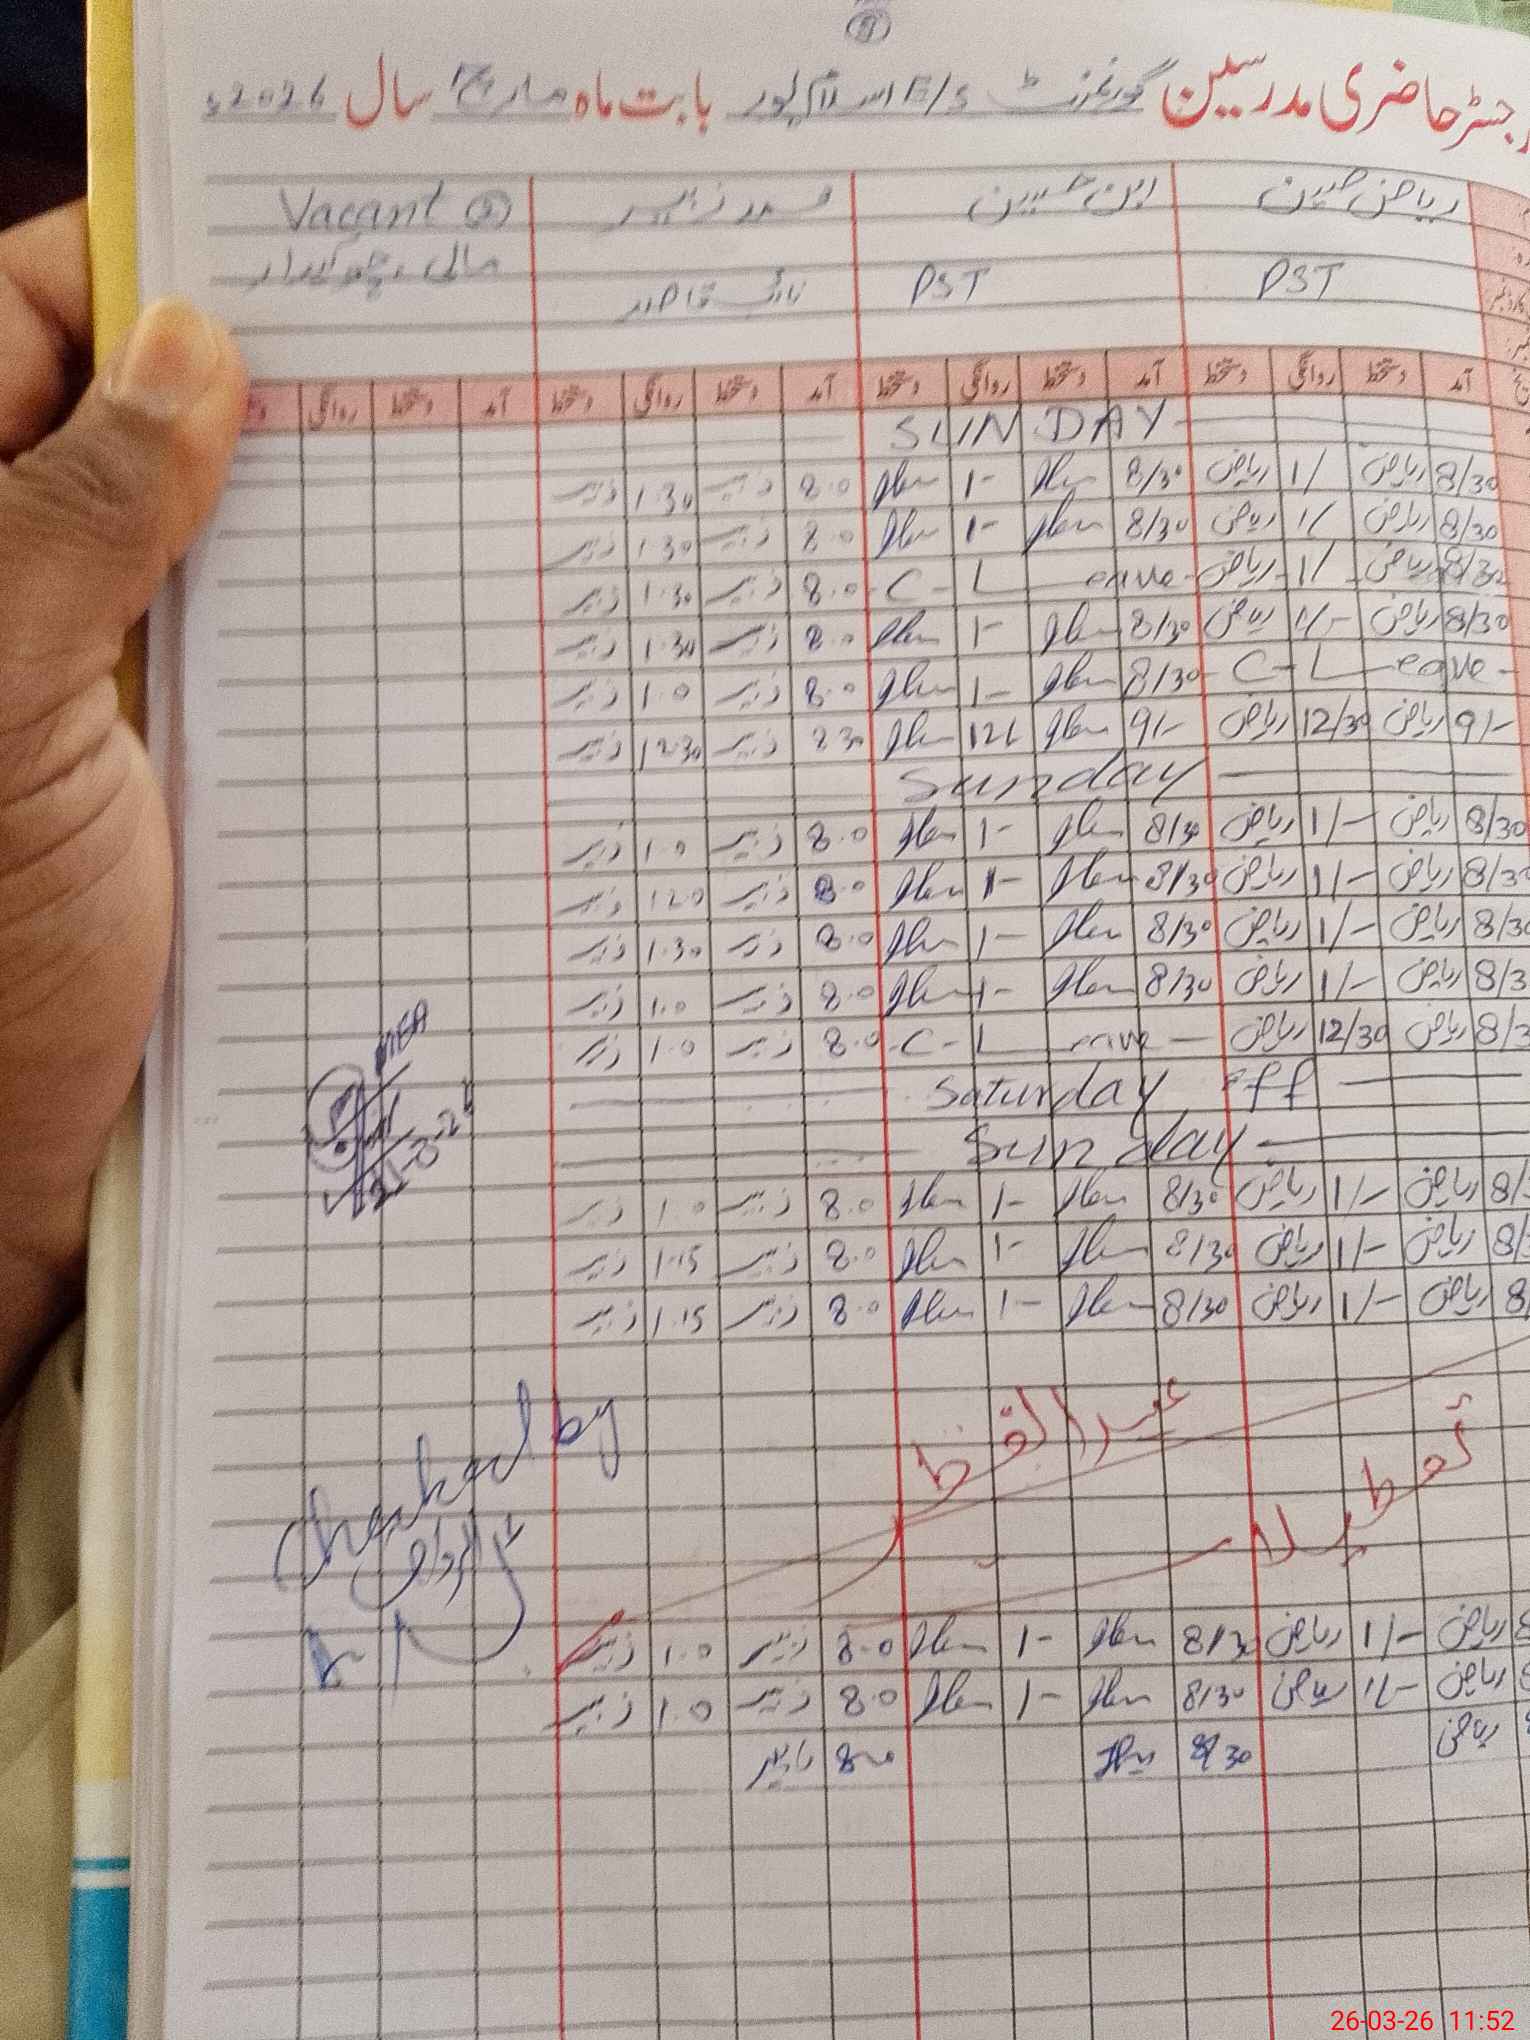 رجسٹر حاضری مدرسین گورنمنٹ E/S اسلام پور بابت ماہ مارچ سال 2026ء
ریاض حسین ابن حسین محمد زبیر Vacant
PST PST نائب قاصد مالی / چوکیدار
آمد دستخط روانگی دستخط آمد دستخط روانگی دستخط آمد دستخط روانگی دستخط آمد دستخط روانگی
SUNDAY
8/30 ریاض 1/ ریاض 8/30 1- 8.0 زبیر 1.30 زبیر
8/30 ریاض 1/ ریاض 8/30 1- 8.0 زبیر 1.30 زبیر
8/30 ریاض 1/- ریاض C-Leave 8.0 زبیر 1.30 زبیر
8/30 ریاض 1/- ریاض 8/30 1- 8.0 زبیر 1.30 زبیر
C-Leave 8/30 1- 8.0 زبیر 1.0 زبیر
9/- ریاض 12/30 ریاض 9/- 12/ 8.30 زبیر 12.30 زبیر
Sunday
8/30 ریاض 1/- ریاض 8/30 1- 8.0 زبیر 1.0 زبیر
8/30 ریاض 1/- ریاض 8/30 1- 8.0 زبیر 1.20 زبیر
8/30 ریاض 1/- ریاض 8/30 1- 8.0 زبیر 1.30 زبیر
8/3 ریاض 1/- ریاض 8/30 1- 8.0 زبیر 1.0 زبیر
8/3 ریاض 12/30 ریاض C-Leave 8.0 زبیر 1.0 زبیر
MEA
Saturday off
Sunday
8/ ریاض 1/- ریاض 8/30 1- 8.0 زبیر 1.0 زبیر
8/ ریاض 1/- ریاض 8/30 1- 8.0 زبیر 1.15 زبیر
8/ ریاض 1/- ریاض 8/30 1- 8.0 زبیر 1.15 زبیر
تعطیلات عید الفطر
Checked by
8 ریاض 1/- ریاض 8/30 1- 8.0 زبیر 1.0 زبیر
8 ریاض 1/- ریاض 8/30 1- 8.0 زبیر 1.0 زبیر
ریاض 8/30 8.0 زبیر
26-03-26 11:52